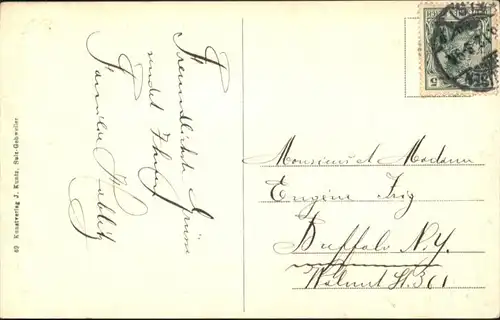 Freundlichste Grüsse
sendet Ihnen
Familie
Monsieur et Madame
Eugène Frig
Buffalo N.Y.
Walnut St. 361
60 Kunstverlag J. Kuntz, Sulz-Gebweiler
5